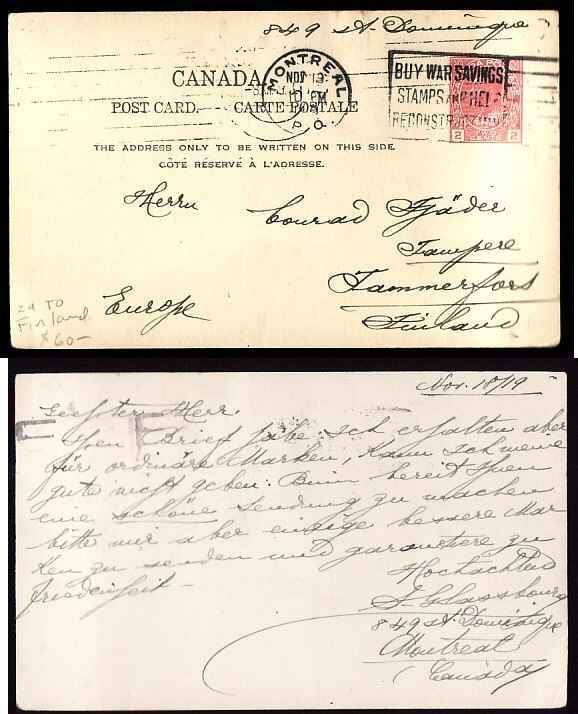 849 St. Dominique
CANADA
MONTREAL
NOV 19
PM
P.Q.
BUY WAR SAVINGS
STAMPS AND HELP
RECONSTRUCTION
2 2
POST CARD. CARTE POSTALE
THE ADDRESS ONLY TO BE WRITTEN ON THIS SIDE.
CÔTÉ RÉSERVÉ À L'ADRESSE.
Herrn Conrad Fjäder
Tampere
Tammerfors
Europe Finland
24 TO
Finland
$60-
Nov. 18/19
Geehrter Herr.
Ihren Brief habe ich erhalten aber
für ordinäre Marken, kann ich meine
gute nicht geben. Binn bereit Ihnen
eine schöne Sendung zu machen
bitte mir aber einige bessere Mar
ken zu senden und garantiere zu
friedenheit –
Hochachtend
S. Glassbourg
849 St. Dominique
Montreal
Canada